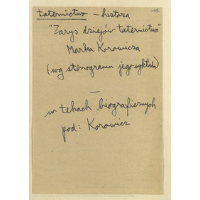 taternictwo – historia
"Zarys dziejów taternictwa"
Marka Korowicza
(wg stenogramu jego
—
w tekach biograficznych
pod: Korowicz